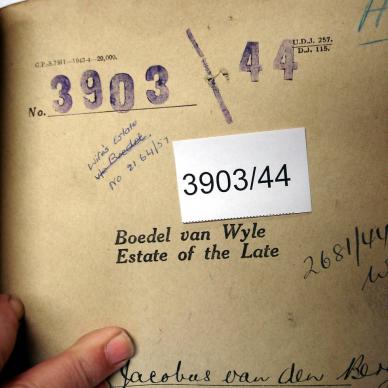 G.P.-S.7811-1942-4-20,000.
U.D.J. 257.
D.J. 115.
No. 3903 / 44
Wife's Estate
No 2164/57
3903/44
Boedel van Wyle
Estate of the Late
2681/44
Jacobus van den Ber